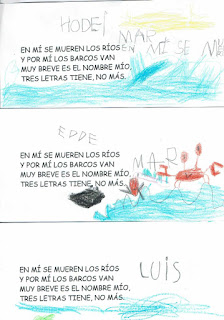 HODEI
MAR
EN MÍ SE MUEREN LOS RÍOS EN MÍ SE M
Y POR MÍ LOS BARCOS VAN
MUY BREVE ES EL NOMBRE MÍO,
TRES LETRAS TIENE, NO MÁS.
EDDE
EN MÍ SE MUEREN LOS RÍOS
Y POR MÍ LOS BARCOS VAN
MAR
MUY BREVE ES EL NOMBRE MÍO,
TRES LETRAS TIENE, NO MÁS.
EN MÍ SE MUEREN LOS RÍOS
Y POR MÍ LOS BARCOS VAN
LUIS
MUY BREVE ES EL NOMBRE MÍO,
TRES LETRAS TIENE, NO MÁS.